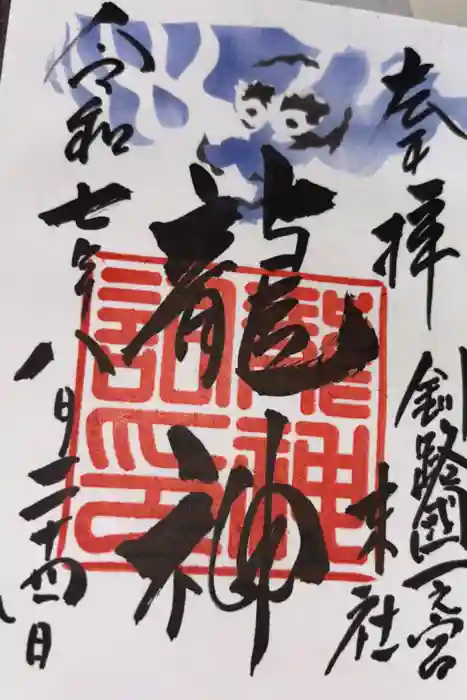 奉拝
釧路國一之宮
末社
龍神
龍神
詞印
令和七年八月二十四日